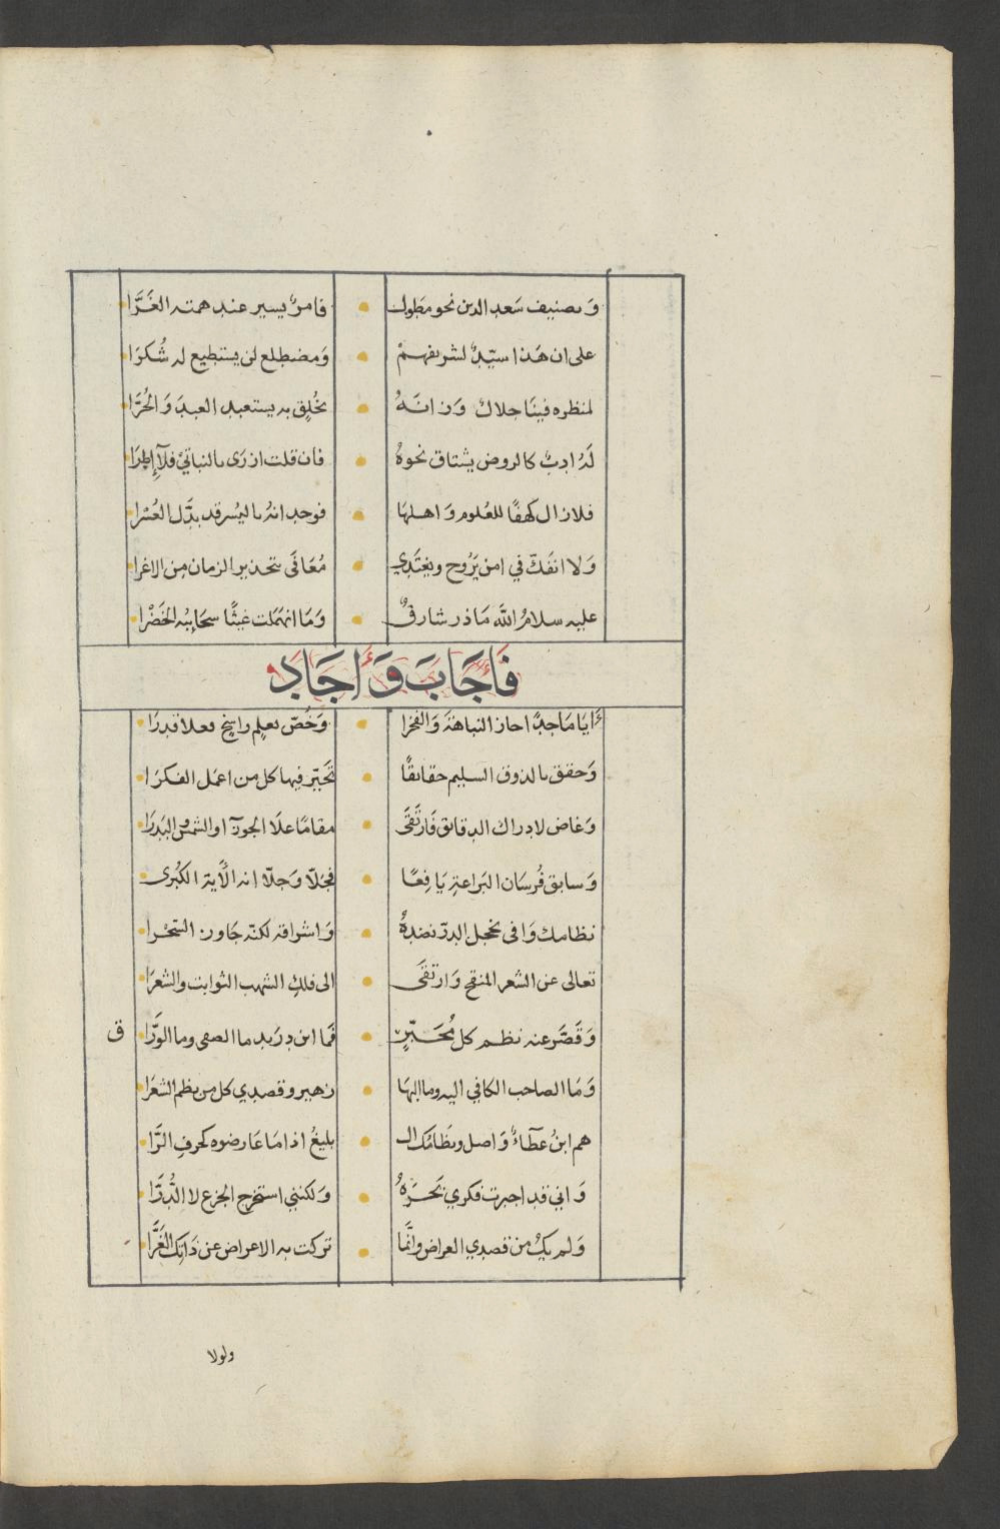 وتصنيف سَعد الدين نحو مطول • فامرٌ يسير عند همته الغَرَّا
على ان هَذا سيّدٌ لشريفهمْ • وَمضطلع لن يستطيع له شُكرَا
لمنظره فينَا جلالٌ وَرزانَةُ • بخُلِق به يستعبد العبدَ وَالحُرَّا
لَهُ ادبٌ كالروض يشتاق نحوهُ • فان قلت ازرَى بالنباتيّ فلا إطرَا
فلازال كهفًا للعُلوم وَاهلهَا • فوجدانهُ باليُسر قد بدَّل العُسْرا
وَلا انفَكّ في امن يَرُوح ويغتَدِي • مُعَافًى بتحذير الزمان مِن الاغرا
عليه سلامُ اللَّه مَا ذر شارقٌ • وَمَا انهمَلت غيثًا سحَايبُه الخَضْرا
فَأَجَابَ وَأَجَادَ
أيَا مَاجدًا حاز النباهةَ وَالفخرا • وَخُصّ بعلمٍ راسخ فعلا قدرَا
وَحقق بالذوق السليم حقايقًا • تحَيّر فيها كل من اعمَل الفكرَا
وَغاص لادراك الدقايق فَارتَقَى • مقامًا علَا الجوزآ والشمس والبَدرَا
وَسابق فُرسَان البَراعةِ يَافِعًا • فجَلّا وَجلّا انه الآية الكُبرى
نظامك وَافى يخجل الدرّ نضدهُ • وَاشراقه لكنّه جَاوز السّحْرا
تعالى عن الشعر المنقح وَارتقَى • الى فلكِ الشهب الثوابت والشعرَا
وَقَصَّر عنه نظم كل مُحَبّرٍ • فَما ابن دُرَيد ما الصفي وما الوَرَّا
ق
وَمَا الصاحب الكافي اليه وما البهَا • زهير وقصدي كل من نظم الشعرَا
هم ابنُ عطآءٌ وَاصل ونظامُك الـ • بليغُ اذا مَا عَارضوه كحرفِ الرّا
وَاني قد اجبرت فكري نَحوَهُ • وَلكنني استخرج الجزع لا الدُّرّا
وَلم يكُ من قصدي العراض وانَّما • تركت به الاعراض عن ذَاتِك الغَرَّا
ولولا